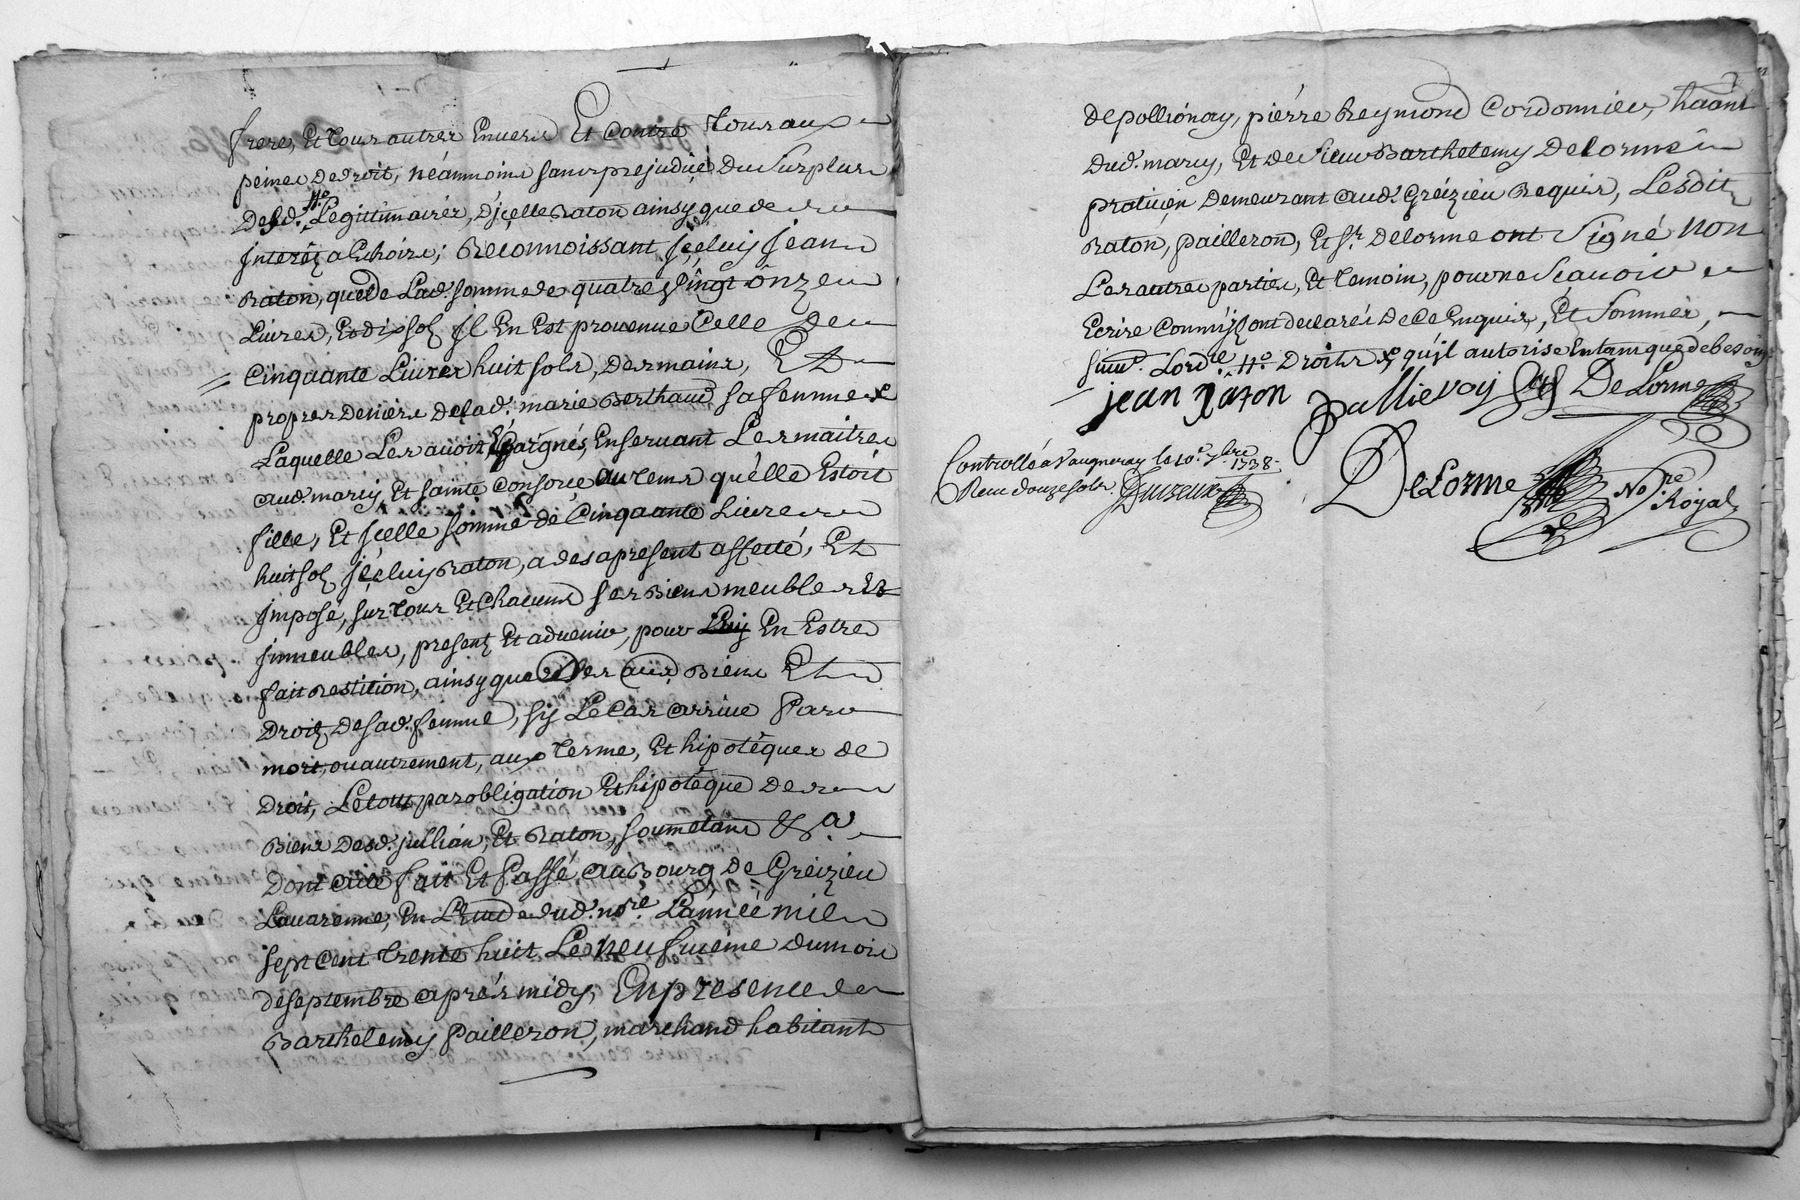 frere, Et Tous autres Envers Et Contre Tous aux
peines De droit, néammoins sans prejudice Du Surplus
Desd. #o Legittimaires, D'jcelle Raton ainsy que de
jnterêz a Echoire; Reconnoissant jceluy jean
Raton, que de Lad. somme de quatre Vingt ônze
Livres, Et dix sol jl En Est provenue Celle de
Cinquante Livres huit sols, Des mains, Et
propres Deniers de lad. marie Berthaud sa femme
Laquelle Les avoit Epargnés, En servant Les maitres
aud. marcy, Et sainte Consorce au Tems qu'elle Estoit
fille, Et jcelle somme de Cinquante Livres
huit sol jceluy Raton, a des apresent affecté, Et
jmposé, sur Tous Et Chacuns ses Biens meubles Et
jmmeubles, present Et advenir, pour En Estre
fait Restition, ainsy que des aux Biens Et
Droitz De sad. femme, sy Le Cas arrive Par
mort, ou autrement, aux Terme, Et hipotêques de
Droit, Le tout par obligation Et hipotêque De
Biens Desd. jullian, Et Raton, soumetans &a
Dont acte fait Et Passé au Bourg de Greizieu
Lavarenne, En L'Etude dud. nore. L'année mil
sept cent Trente huit Le neufvieme du mois
de septembre aprés midy, En presence de
Barthelemy Pailleron, marchand habitant
de pollionay, pierre Reymond Cordonnier, haânt
Dud. marcy, Et de sieur Barthelemy Delorme
praticien Demeurant aud. Greizieu Requis, Lesdit
Raton, pailleron, Et Sr. Delorme ont Signé non
Les autres parties, Et Temoin, pour ne Scavoir
Ecrire Comm'jlz ont declarés De Ce Enquis, Et Sommés,
suiv. Lordce. #o. Droits xo qu'jl autorise En tant que de besoing
jean Raton DeLorme
Controllé a Vaugneray le 10e. 7bre 1738.
Receu douze sols.
DeLorme Nore Royal